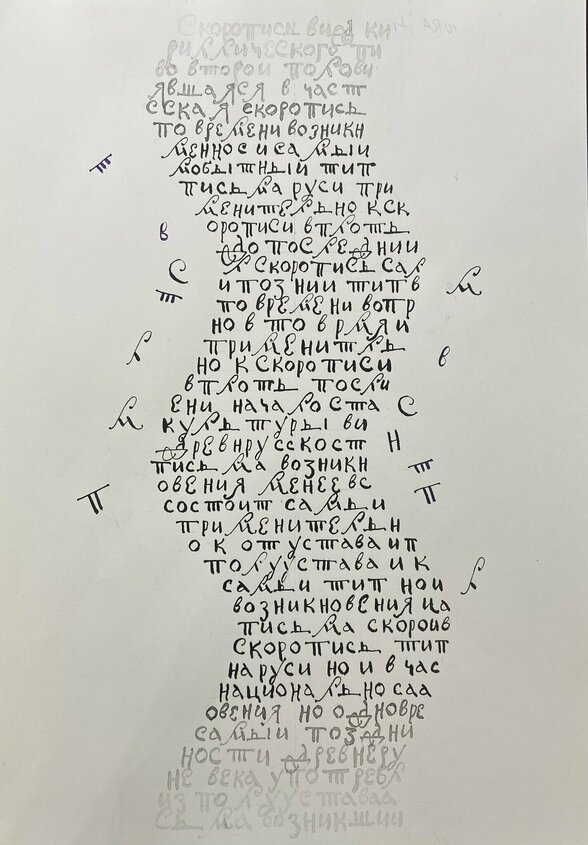 Скоропись вид ки
риллического пи
во второй полови
явшаяся в част
сская скоропись
по времени возникн
менно с и самый
мобытный тип
письма руси при
менительно к ск
орописи вплоть
до последнии
л скоропись сал
и поз нии тип в
по времени вопр
но в то в рмя и
применитль
но к скорописи
вплоть посли
ени начало ста
культуры ви
древнрусскост
письма возникн
овения менее вс
состоит самы
применительн
о к от устава ип
полуустава и к
самы и тип нои
возникновения ца
письма скороив
скоропись тип
на руси но и в час
национально саа
овения но одновре
самый поздни
ности древнеру
не века употребл
из полууставаа
сьма возникший
т
в
с
т
м
л
в
м
с
н
т
п
п
л